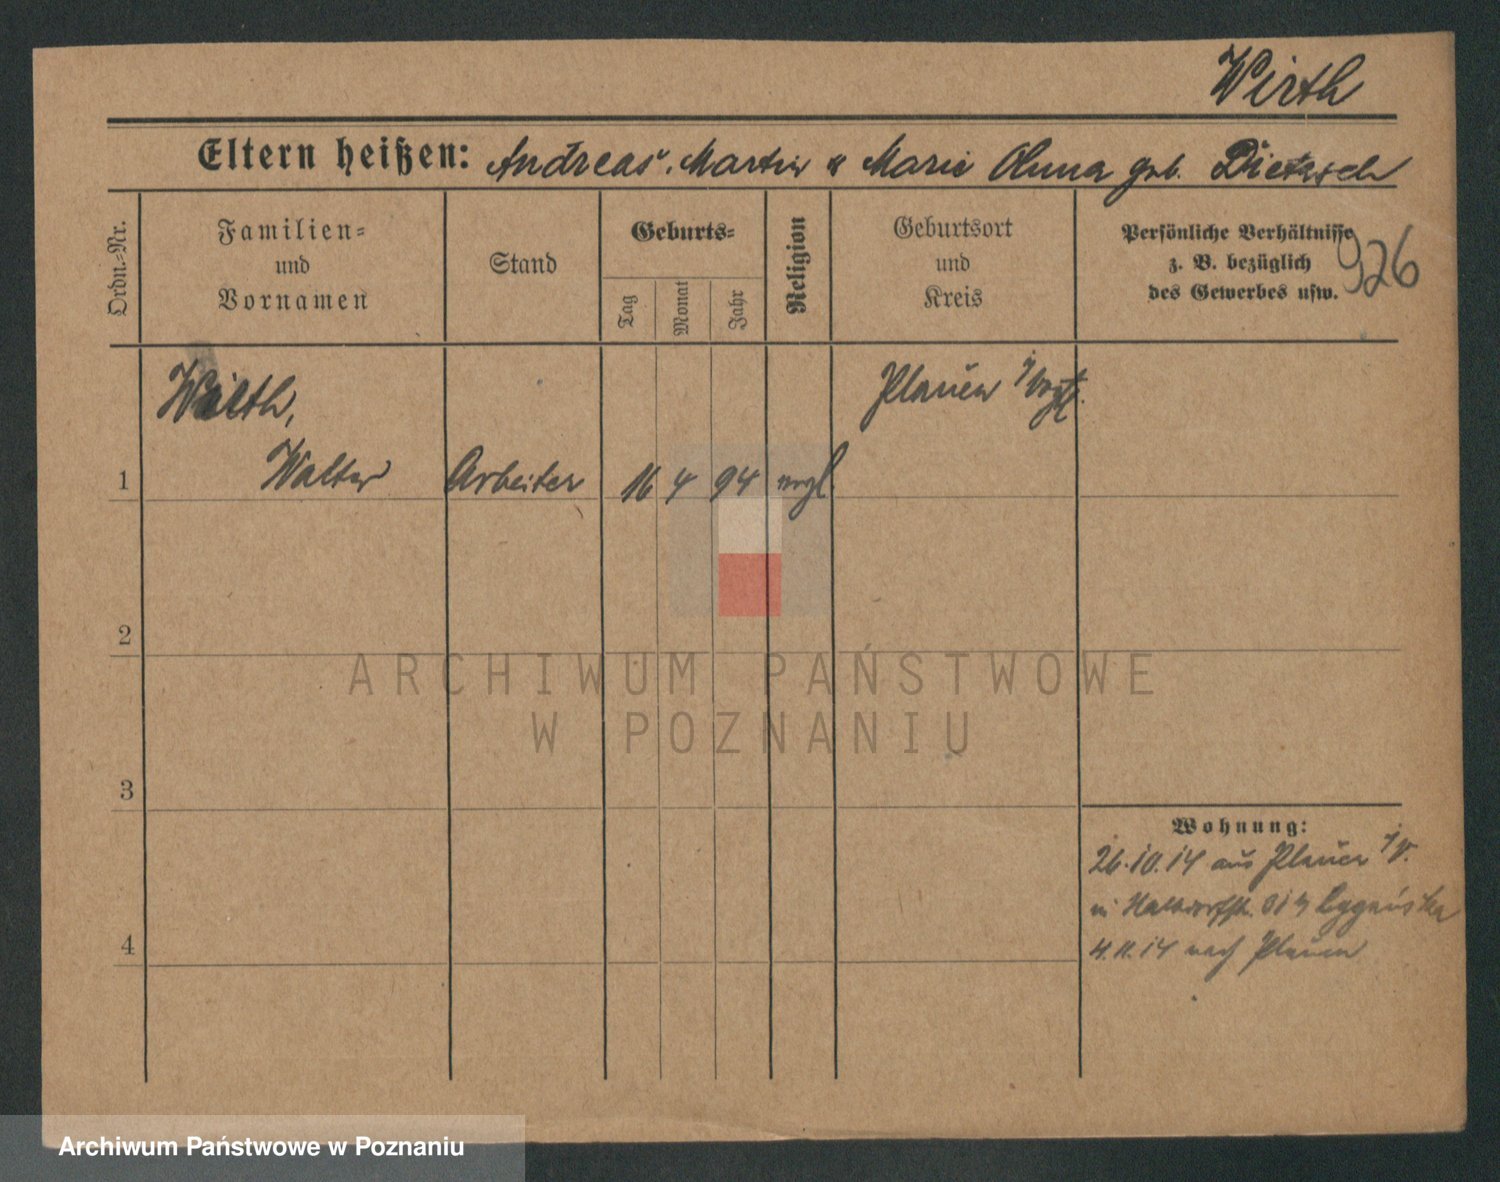 Wirth
Eltern heißen: Andreas Martin u Marie Anna geb. Dietzsch
Ordn.-Nr.
Familien-
und
Vornamen
Stand
Geburts-
Tag
Monat
Jahr
Religion
Geburtsort
und
Kreis
Persönliche Verhältnisse
z. B. bezüglich
des Gewerbes usw.
926
Wirth,
Walter
1
Arbeiter
16 4 94
evgl.
Plauen i/Vogtl.
2
3
4
Wohnung:
26.10.14 aus Plauen i/V.
in Halbdorfstr.
4.11.14 nach Plauen
ARCHIWUM PAŃSTWOWE
W POZNANIU
Archiwum Państwowe w Poznaniu